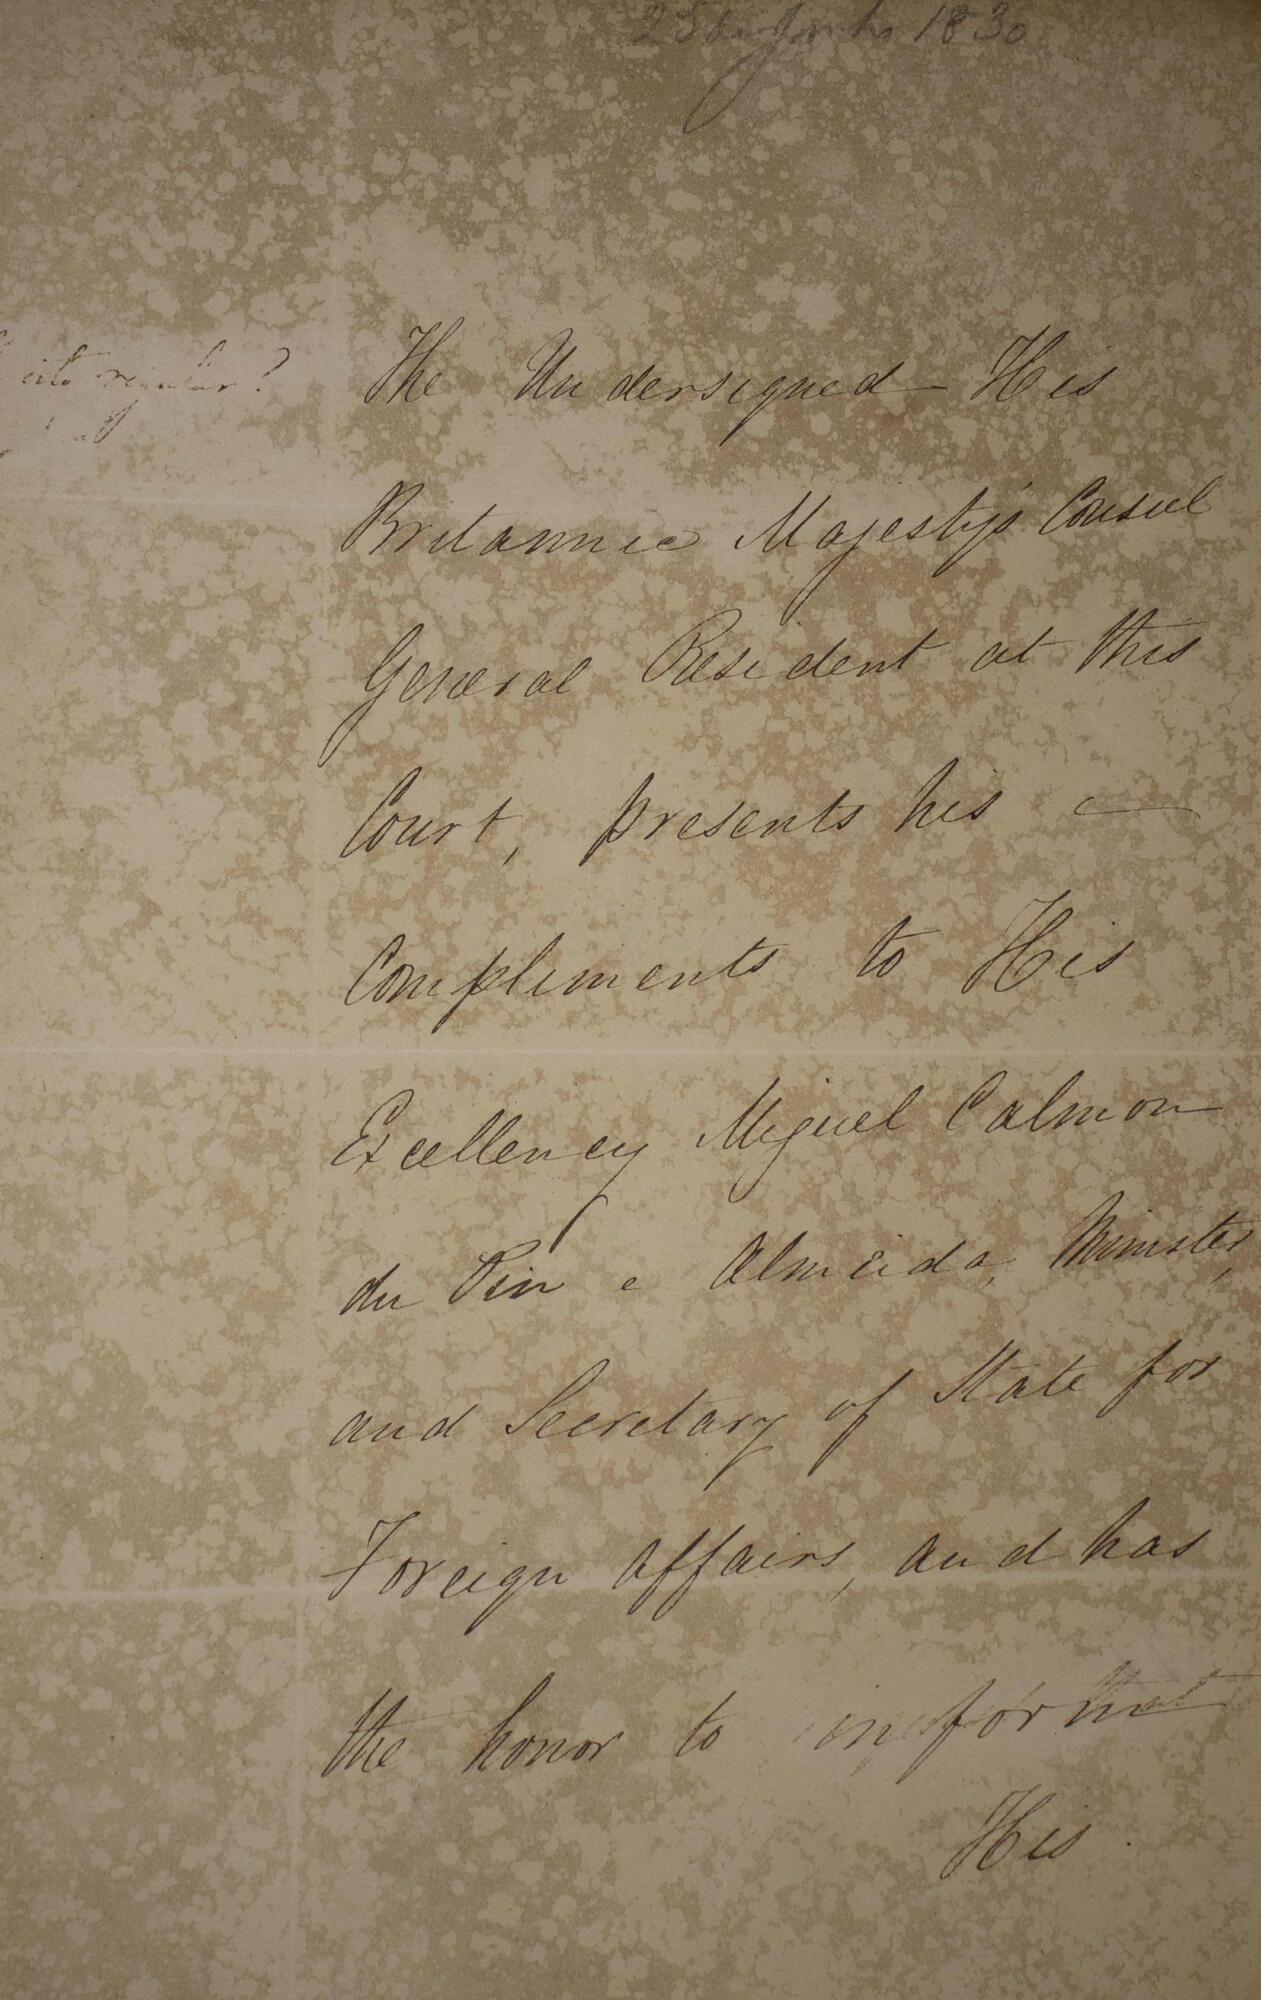 25 de Junho 1830
regular?
The Undersigned His
Britannic Majesty's Consul
General Resident at this
Court, presents his
Compliments to His
Excellency Miguel Calmon
du Pin e Almeida, Minister,
and Secretary of State for
Foreign affairs, and has
the honor to inform that
His